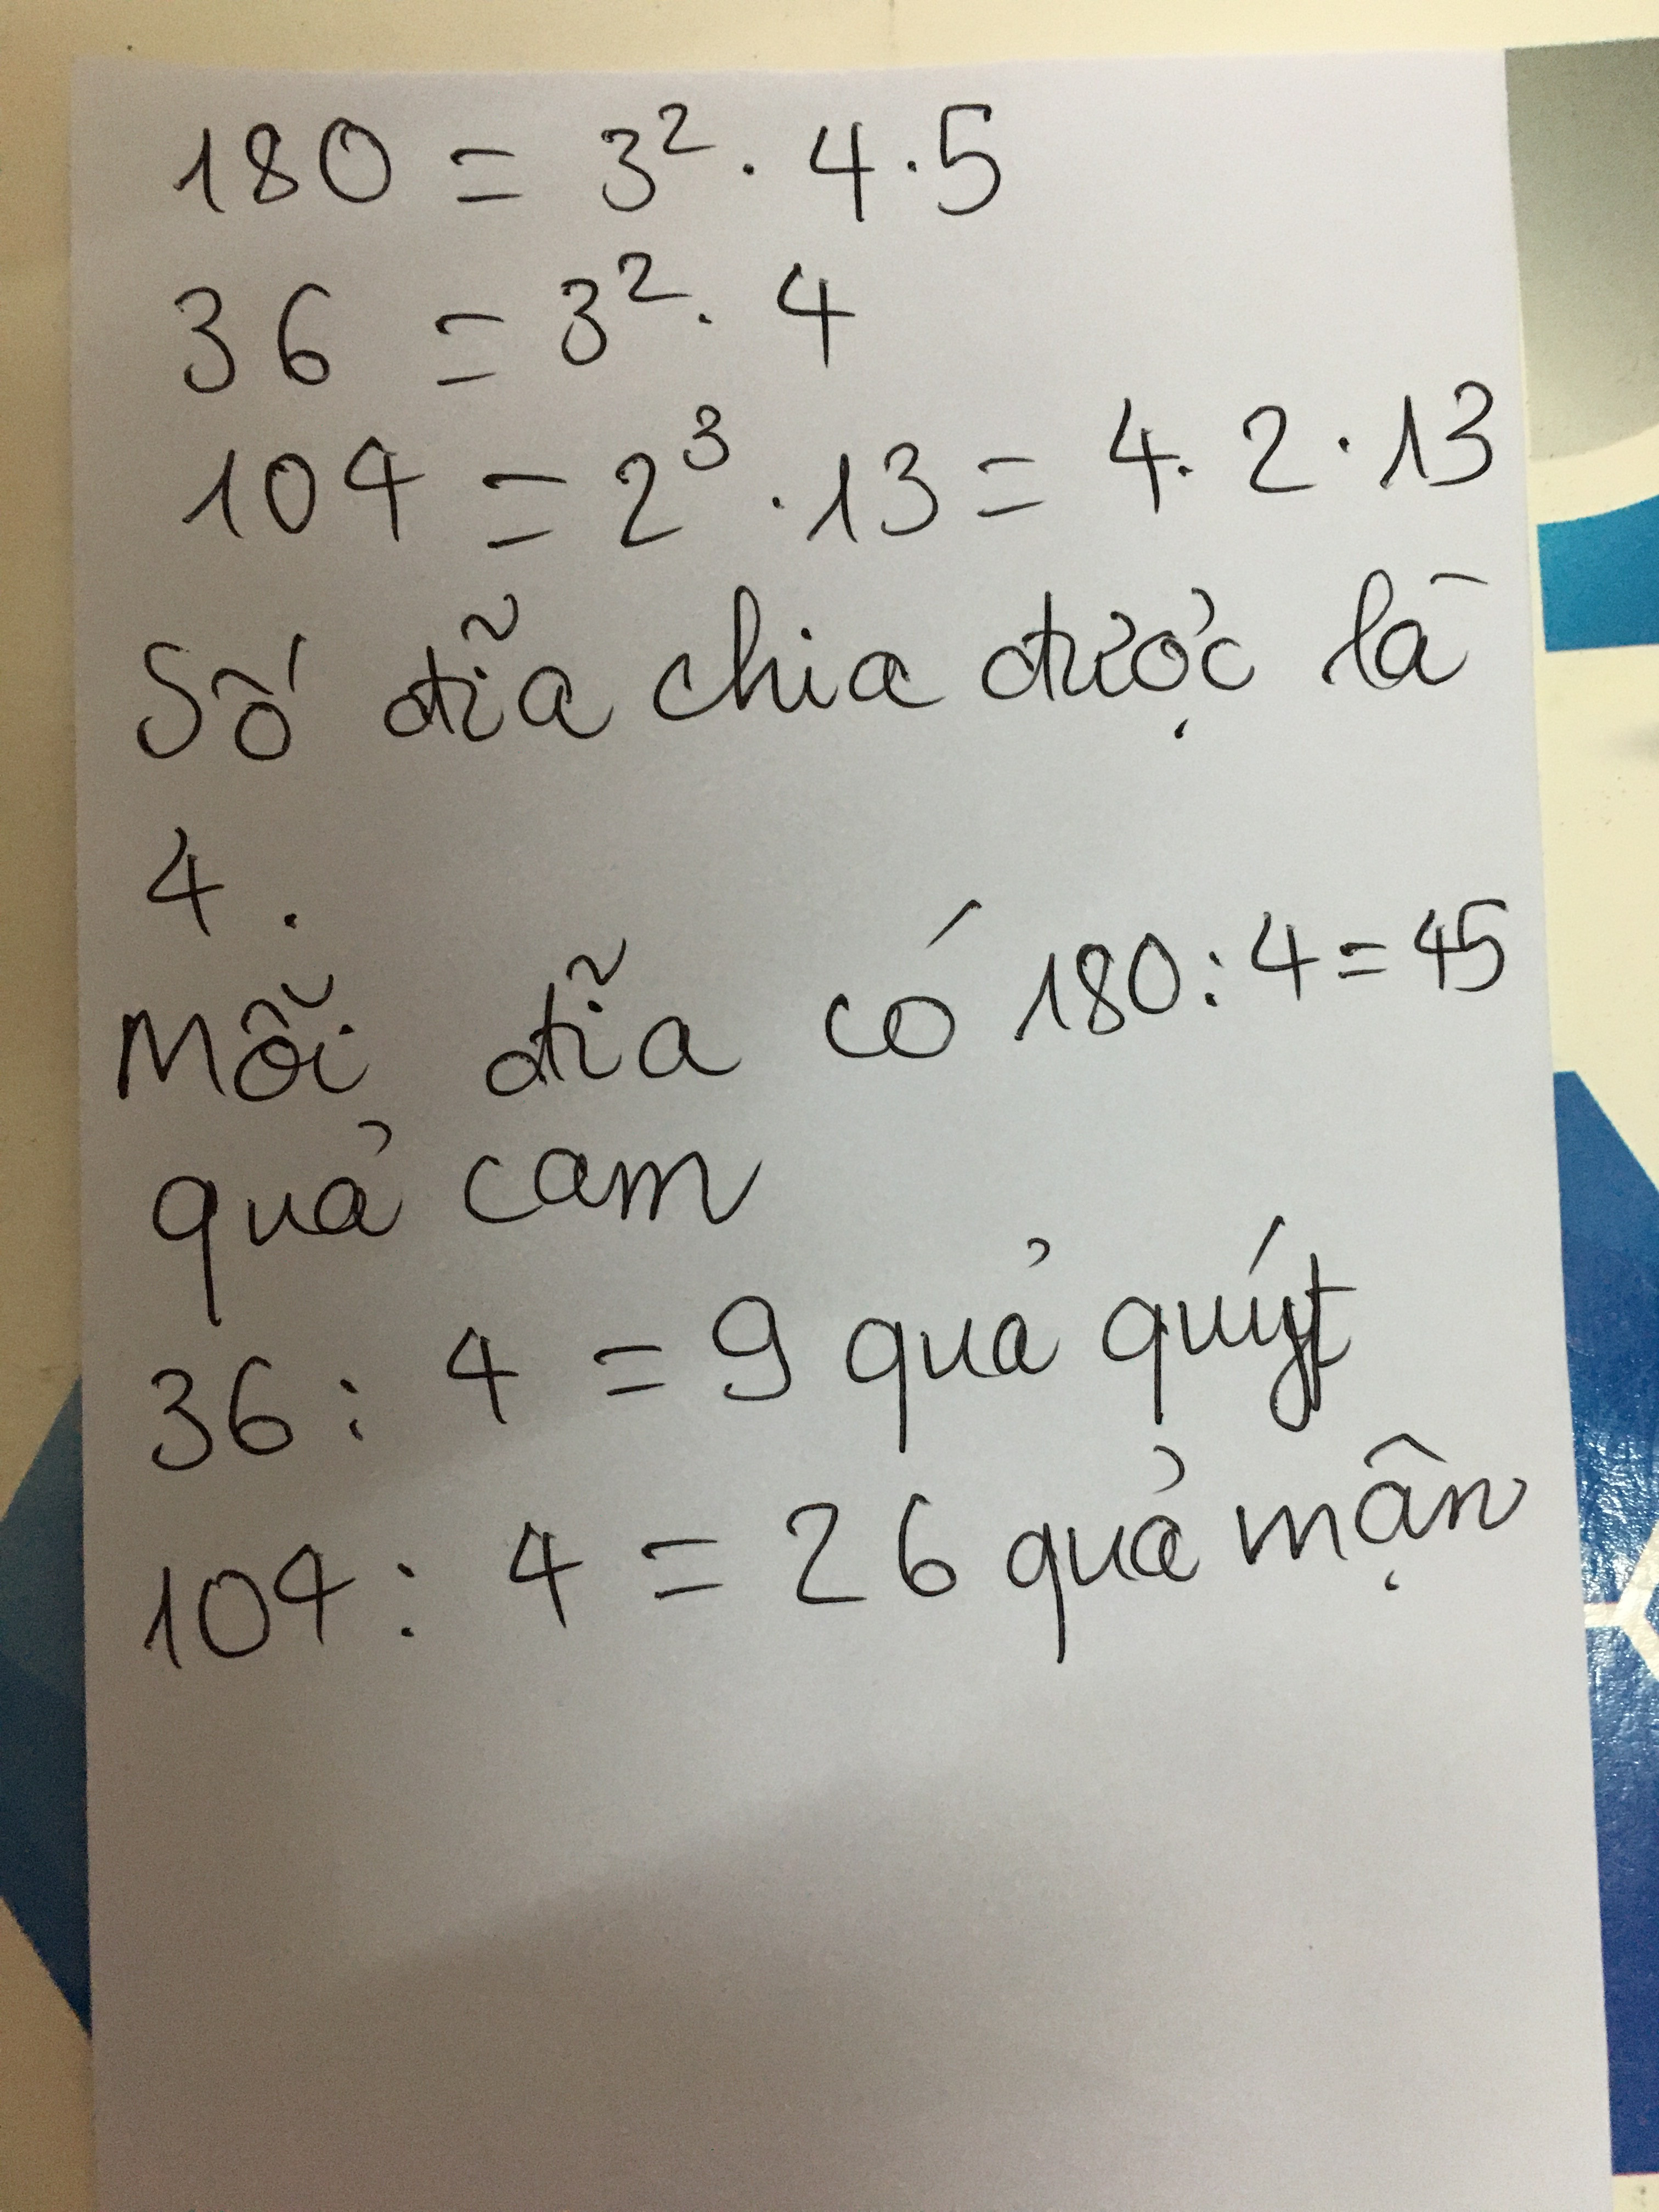 180 = 3² . 4 . 5
36 = 3² . 4
104 = 2³ . 13 = 4 . 2 . 13
Số đĩa chia được là
4 .
Mỗi đĩa có 180 : 4 = 45
quả cam
36 : 4 = 9 quả quýt
104 : 4 = 26 quả mận